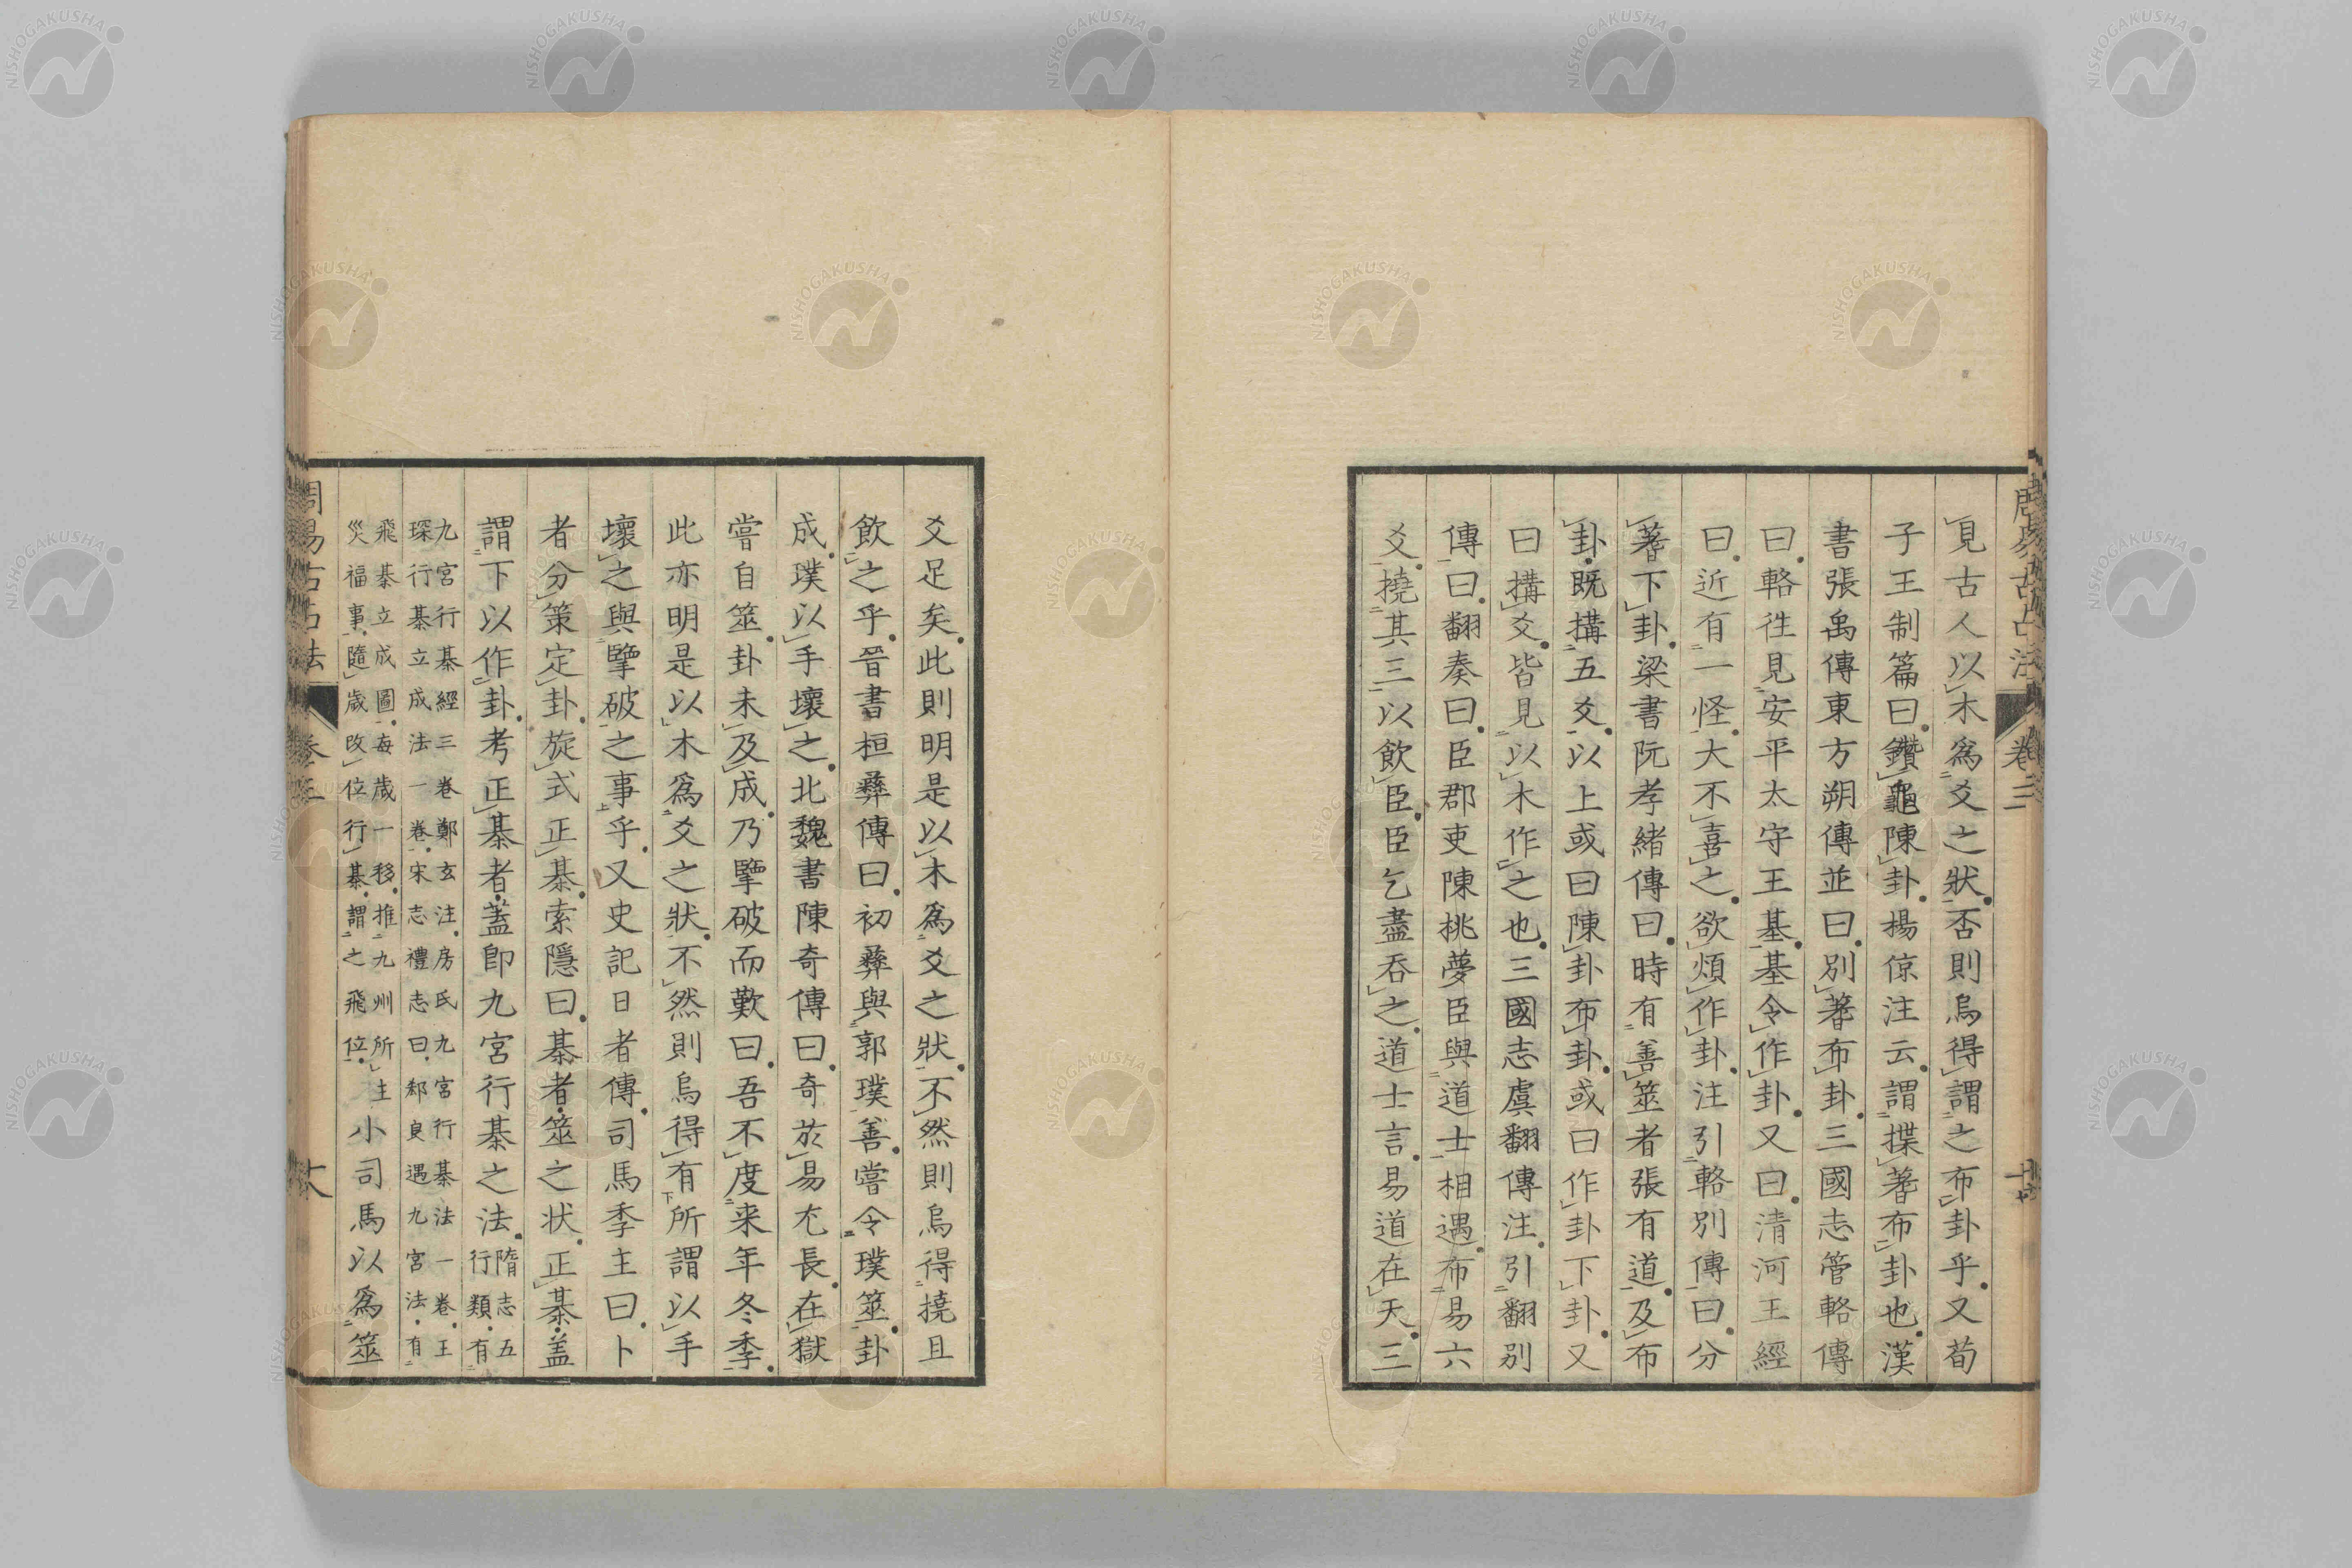 見古人以木爲爻之狀否則烏得謂之布卦乎又荀
子王制篇曰鑽龜陳卦楊倞注云謂揲蓍布卦也漢
書張禹傳東方朔傳並曰別蓍布卦三國志管輅傳
曰輅徃見安平太守王基基令作卦又曰清河王經
曰近有一怪大不喜之欲煩作卦注引輅別傳曰分
蓍下卦梁書阮孝緒傳曰時有善筮者張有道及布
卦既搆五爻以上或曰陳卦布卦或曰作卦下卦又
曰搆爻皆見以木作之也三國志虞翻傳注引翻別
傳曰翻奏曰臣郡吏陳桃夢臣與道士相遇布易六
爻撓其三以飲臣臣乞盡吞之道士言易道在天三
爻足矣此則明是以木爲爻之狀不然則烏得撓且
飲之乎晉書桓彝傳曰初彝與郭璞善嘗令璞筮卦
成璞以手壞之北魏書陳奇傳曰奇於易尤長在獄
嘗自筮卦未及成乃擥破而歎曰吾不度来年冬季
此亦明是以木爲爻之狀不然則烏得有所謂以手
壞之與擥破之事乎又史記日者傳司馬季主曰卜
者分策定卦旋式正棊索隱曰棊者筮之状正棊蓋
謂下以作卦考正棊者蓋卽九宮行棊之法隋志五行類有
九宮行棊經三卷鄭玄注房氏九宮行棊法一卷王
琛行棊立成法一卷宋志禮志曰郄良遇九宮法有
飛棊立成圖每歳一移推九州所主
災福事隨歳改位行棊謂之飛位小司馬以爲筮
周易古占法
卷三